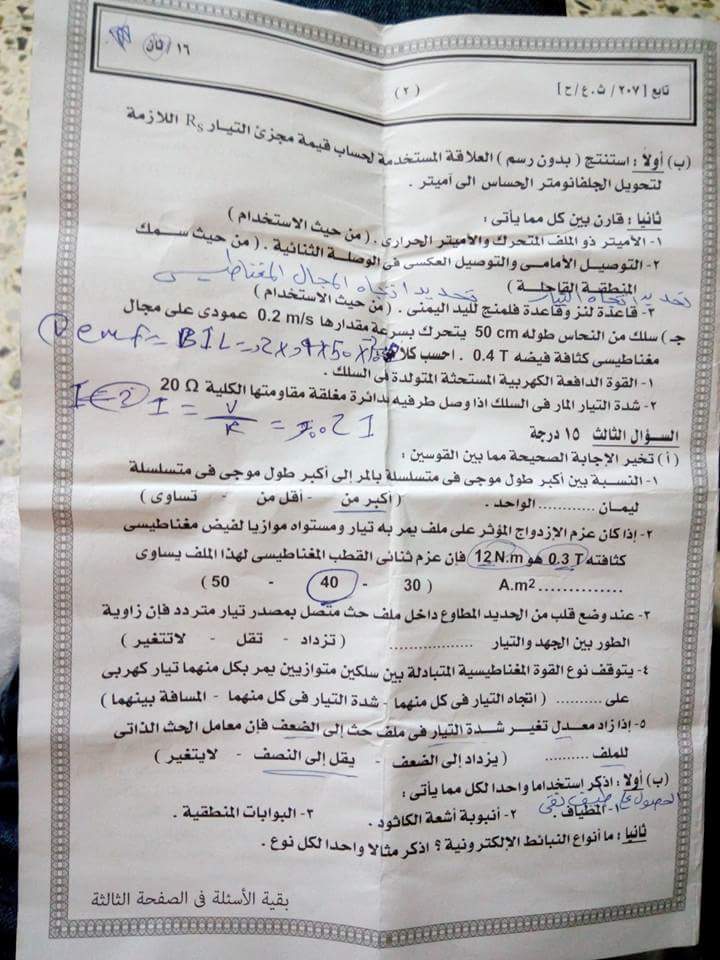 ١٦ / ثان
تابع [ ٢٠٧ / ث.ع / ح ] ( ٢ )
(ب) أولاً : استنتج ( بدون رسم ) العلاقة المستخدمة لحساب قيمة مجزئ التيار RS اللازمة
لتحويل الجلفانومتر الحساس الى أميتر .
ثانيا : قارن بين كل مما يأتى :
١- الأميتر ذو الملف المتحرك والأميتر الحرارى . ( من حيث الاستخدام )
٢- التوصيل الأمامى والتوصيل العكسى فى الوصلة الثنائية . ( من حيث سمك
المنطقة القاحلة )
تحديد اتجاه التيار تحديد اتجاه المجال المغناطيسى
٣- قاعدة لنز وقاعدة فلمنج لليد اليمنى . ( من حيث الاستخدام )
جـ) سلك من النحاس طوله 50 cm يتحرك بسرعة مقدارها 0.2 m/s عمودى على مجال
مغناطيسى كثافة فيضه 0.4 T . احسب كلا
emf = BIL =
١- القوة الدافعة الكهربية المستحثة المتولدة فى السلك .
٢- شدة التيار المار فى السلك اذا وصل طرفيه بدائرة مغلقة مقاومتها الكلية 20 Ω
I = V/R =
السؤال الثالث ١٥ درجة
( أ ) تخير الإجابة الصحيحة مما بين القوسين :
١- النسبة بين أكبر طول موجى فى متسلسلة بالمر إلى أكبر طول موجى فى متسلسلة
ليمان ............ الواحد . ( أكبر من - أقل من - تساوى )
٢- إذا كان عزم الإزدواج المؤثر على ملف يمر به تيار ومستواه موازيا لفيض مغناطيسى
كثافته 0.3 T هو 12 N.m فإن عزم ثنائى القطب المغناطيسى لهذا الملف يساوى
.............. A.m2 ( 30 - 40 - 50 )
٣- عند وضع قلب من الحديد المطاوع داخل ملف حث متصل بمصدر تيار متردد فإن زاوية
الطور بين الجهد والتيار ................ ( تزداد - تقل - لاتتغير )
٤- يتوقف نوع القوة المغناطيسية المتبادلة بين سلكين متوازيين يمر بكل منهما تيار كهربى
على .......... ( اتجاه التيار فى كل منهما - شدة التيار فى كل منهما - المسافة بينهما )
٥- إذا زاد معدل تغير شدة التيار فى ملف حث إلى الضعف فإن معامل الحث الذاتى
للملف .......... ( يزداد إلى الضعف - يقل إلى النصف - لايتغير )
(ب) أولاً : اذكر إستخداما واحدا لكل مما يأتى :
الحصول على طيف نقى
١- المطياف . ٢- أنبوبة أشعة الكاثود . ٣- البوابات المنطقية .
ثانيا : ما أنواع النبائط الإلكترونية ؟ اذكر مثالا واحدا لكل نوع .
بقية الأسئلة فى الصفحة الثالثة